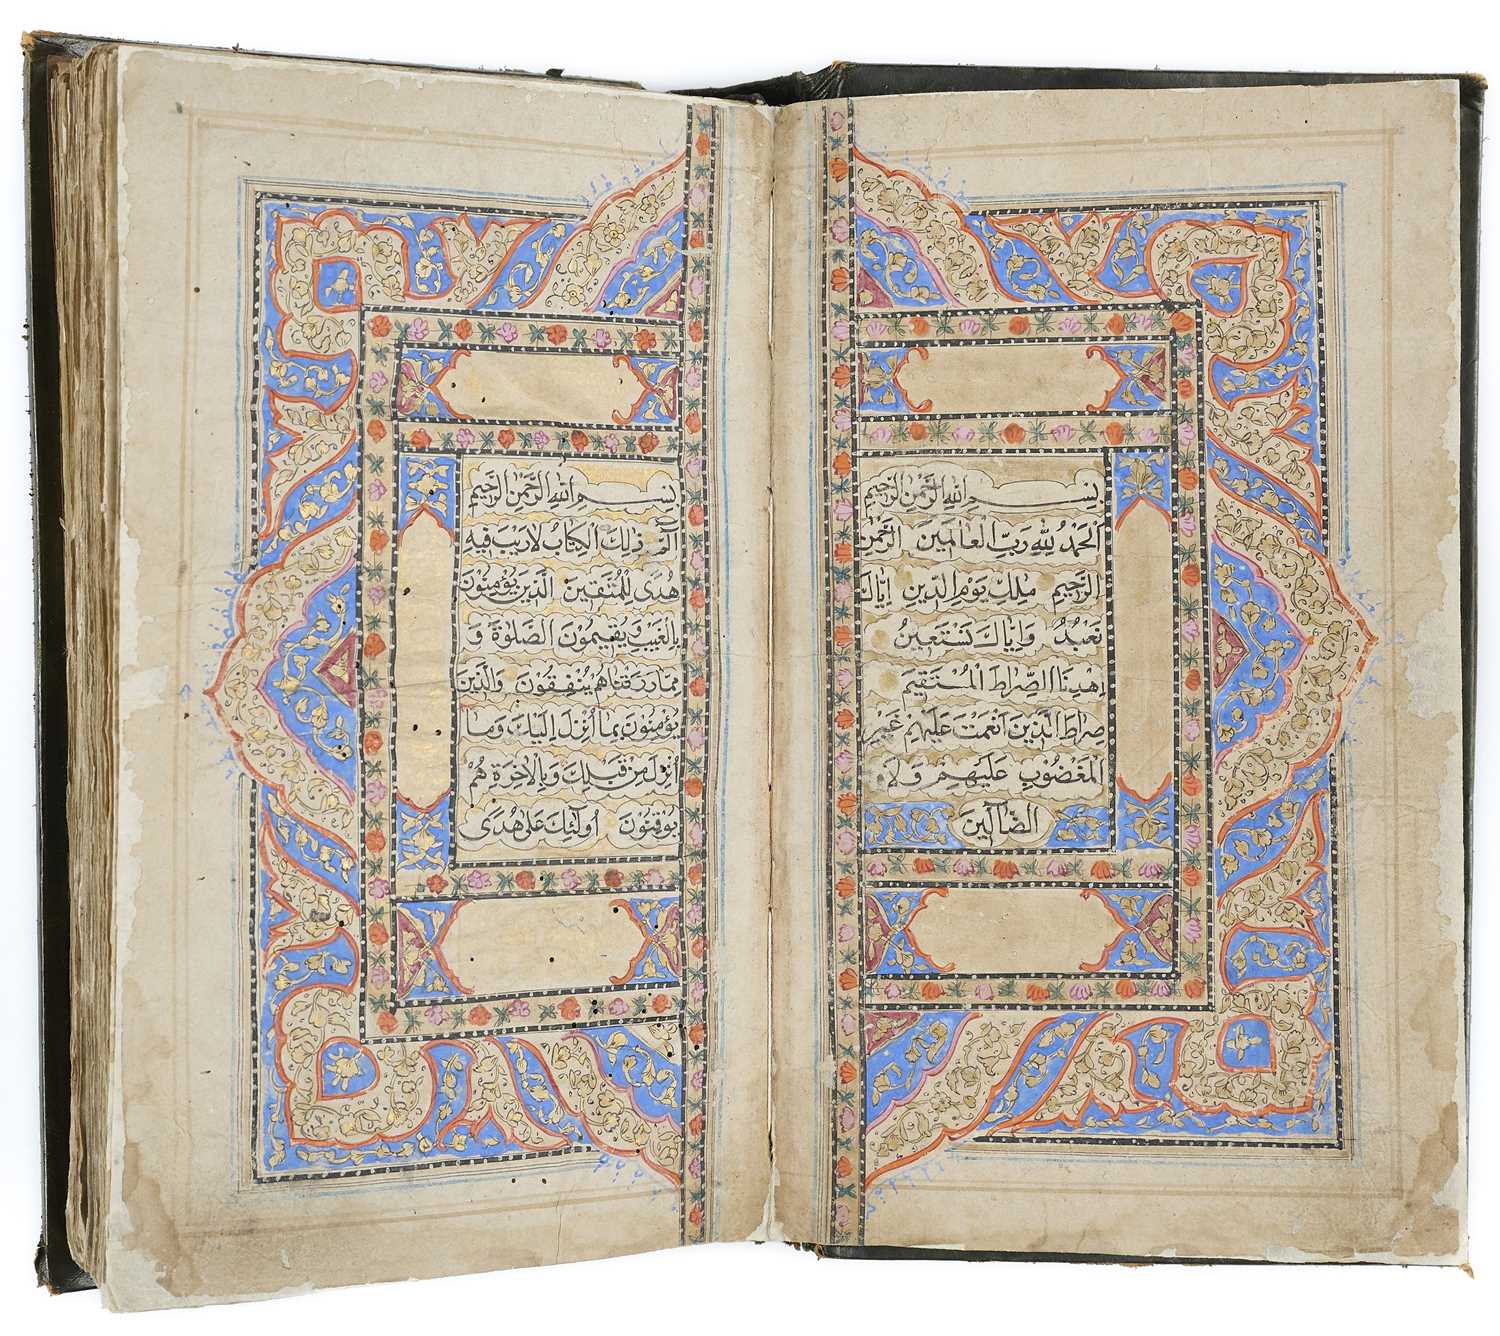 بِسْمِ اللهِ الرَّحْمٰنِ الرَّحِيْمِ
اَلْحَمْدُ لِلّٰهِ رَبِّ الْعَالَمِيْنَ الرَّحْمٰنِ
الرَّحِيْمِ مٰلِكِ يَوْمِ الدِّيْنِ اِيَّاكَ
نَعْبُدُ وَاِيَّاكَ نَسْتَعِيْنُ
اِهْدِنَا الصِّرَاطَ الْمُسْتَقِيْمَ
صِرَاطَ الَّذِيْنَ اَنْعَمْتَ عَلَيْهِمْ غَيْرِ
الْمَغْضُوْبِ عَلَيْهِمْ وَلَا
الضَّآلِّيْنَ
بِسْمِ اللهِ الرَّحْمٰنِ الرَّحِيْمِ
الٓمّٓ ذٰلِكَ الْكِتَابُ لَارَيْبَ فِيْهِ
هُدًى لِلْمُتَّقِيْنَ الَّذِيْنَ يُؤْمِنُوْنَ
بِالْغَيْبِ وَيُقِيْمُوْنَ الصَّلٰوةَ وَ
مِمَّا رَزَقْنَاهُمْ يُنْفِقُوْنَ وَالَّذِيْنَ
يُؤْمِنُوْنَ بِمَا اُنْزِلَ اِلَيْكَ وَمَا
اُنْزِلَ مِنْ قَبْلِكَ وَبِالْاٰخِرَةِ هُمْ
يُوْقِنُوْنَ اُولٰٓئِكَ عَلٰى هُدًى